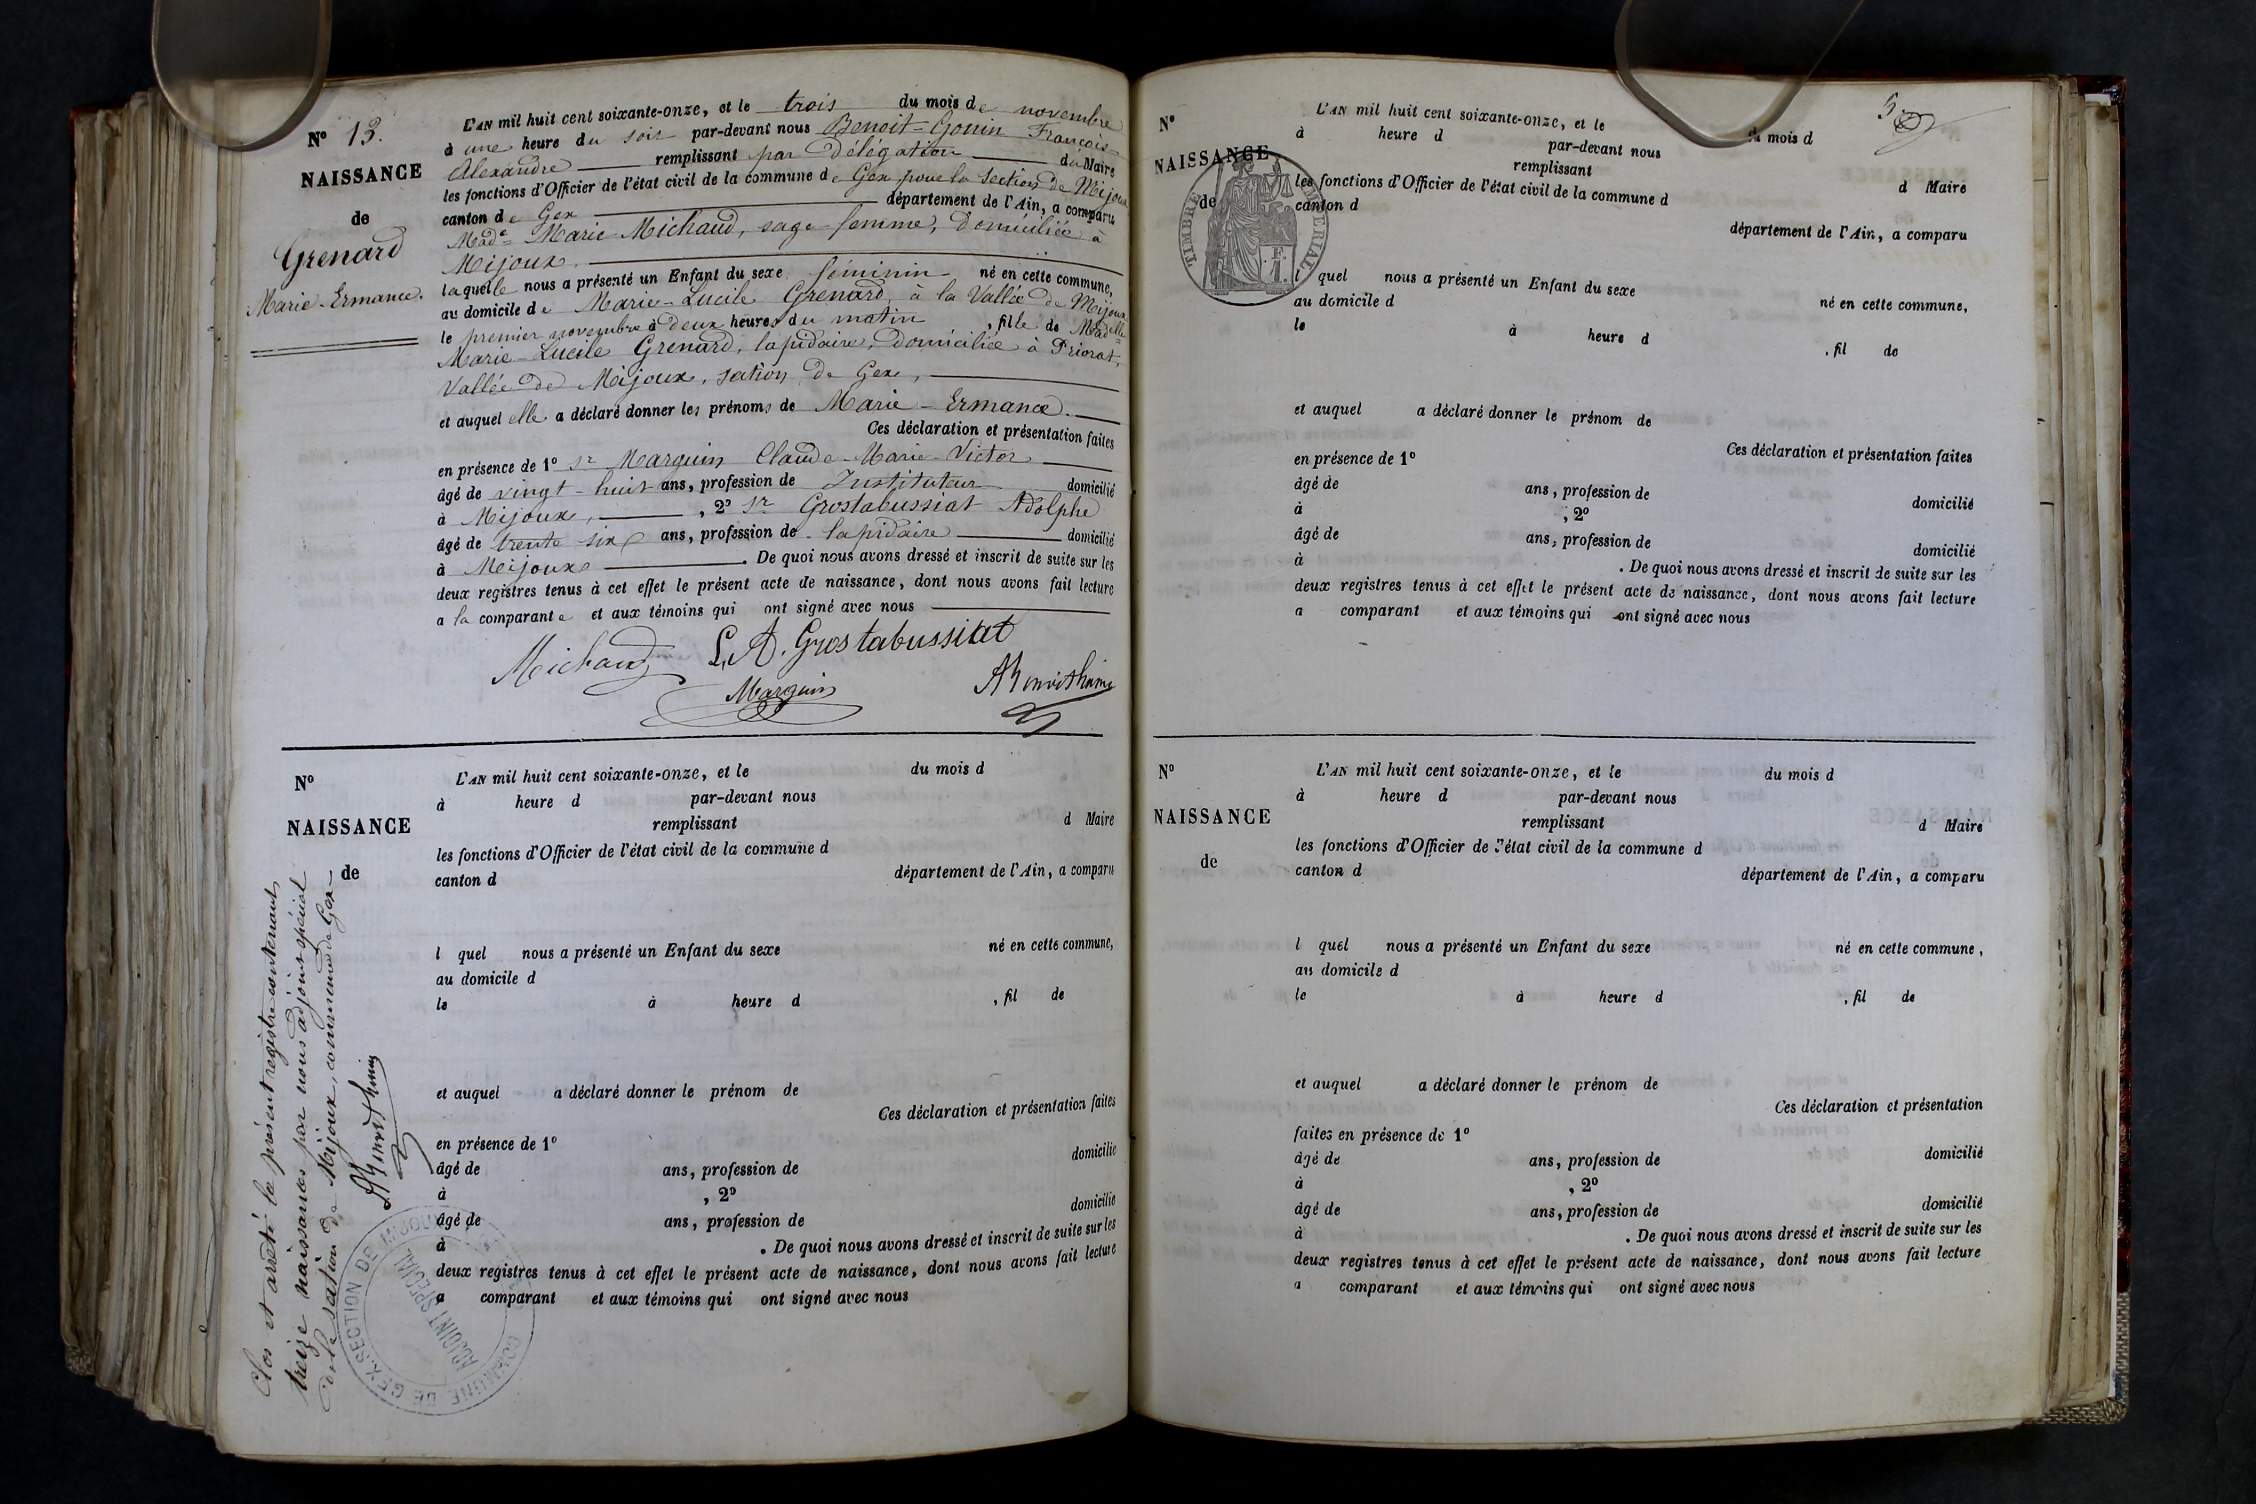 N° 13.
NAISSANCE
de
Grenard
Marie-Ermance.
L'AN mil huit cent soixante-onze, et le trois du mois de novembre
à une heure du soir par-devant nous Benoit-Gonin François-
Alexandre remplissant par délégation du Maire
les fonctions d'Officier de l'état civil de la commune de Gex pour la Section de Mijoux
canton de Gex département de l'Ain, a comparu
Made Marie Michaud, sage-femme, domiciliée à
Mijoux.
laquelle nous a présenté un Enfant du sexe féminin né en cette commune,
au domicile de Marie-Lucile Grenard, à la Vallée de Mijoux
le premier novembre à deux heures du matin, fille de Madelle
Marie-Lucile Grenard, lapidaire, domiciliée à Priorat,
Vallée de Mijoux, section de Gex,
et auquel elle a déclaré donner les prénoms de Marie-Ermance.
Ces déclaration et présentation faites
en présence de 1° Sr Marquin Claude-Marie-Victor
âgé de vingt-huit ans, profession de Instituteur domicilié
à Mijoux, , 2° Sr Grostabussiat Adolphe
âgé de trente six ans, profession de lapidaire domicilié
à Mijoux . De quoi nous avons dressé et inscrit de suite sur les
deux registres tenus à cet effet le présent acte de naissance, dont nous avons fait lecture
a la comparante et aux témoins qui ont signé avec nous
Michaud L. A. Grostabussiat
Marquin
N°
NAISSANCE
de
L'AN mil huit cent soixante-onze, et le du mois d
à heure d par-devant nous
remplissant d Maire
les fonctions d'Officier de l'état civil de la commune d
canton d département de l'Ain, a comparu
l quel nous a présenté un Enfant du sexe né en cette commune,
au domicile d
le à heure d , fil de
et auquel a déclaré donner le prénom de
Ces déclaration et présentation faites
en présence de 1°
âgé de ans, profession de domicilié
à , 2°
âgé de ans, profession de domicilié
à . De quoi nous avons dressé et inscrit de suite sur les
deux registres tenus à cet effet le présent acte de naissance, dont nous avons fait lecture
a comparant et aux témoins qui ont signé avec nous
Clos et arrêté le présent registre contenant
treize naissances par nous adjoint spécial
de la section de Mijoux, commune de Gex
COMMUNE DE GEX. SECTION DE MIJOUX
ADJOINT SPECIAL
5
N°
NAISSANCE
de
TIMBRE IMPERIAL
L'AN mil huit cent soixante-onze, et le du mois d
à heure d par-devant nous
remplissant d Maire
les fonctions d'Officier de l'état civil de la commune d
canton d département de l'Ain, a comparu
l quel nous a présenté un Enfant du sexe né en cette commune,
au domicile d
le à heure d , fil de
et auquel a déclaré donner le prénom de
Ces déclaration et présentation faites
en présence de 1°
âgé de ans, profession de domicilié
à , 2°
âgé de ans, profession de domicilié
à . De quoi nous avons dressé et inscrit de suite sur les
deux registres tenus à cet effet le présent acte de naissance, dont nous avons fait lecture
a comparant et aux témoins qui ont signé avec nous
N°
NAISSANCE
de
L'AN mil huit cent soixante-onze, et le du mois d
à heure d par-devant nous
remplissant d Maire
les fonctions d'Officier de l'état civil de la commune d
canton d département de l'Ain, a comparu
l quel nous a présenté un Enfant du sexe né en cette commune,
au domicile d
le à heure d , fil de
et auquel a déclaré donner le prénom de
Ces déclaration et présentation
faites en présence de 1°
âgé de ans, profession de domicilié
à , 2°
âgé de ans, profession de domicilié
à . De quoi nous avons dressé et inscrit de suite sur les
deux registres tenus à cet effet le présent acte de naissance, dont nous avons fait lecture
a comparant et aux témoins qui ont signé avec nous